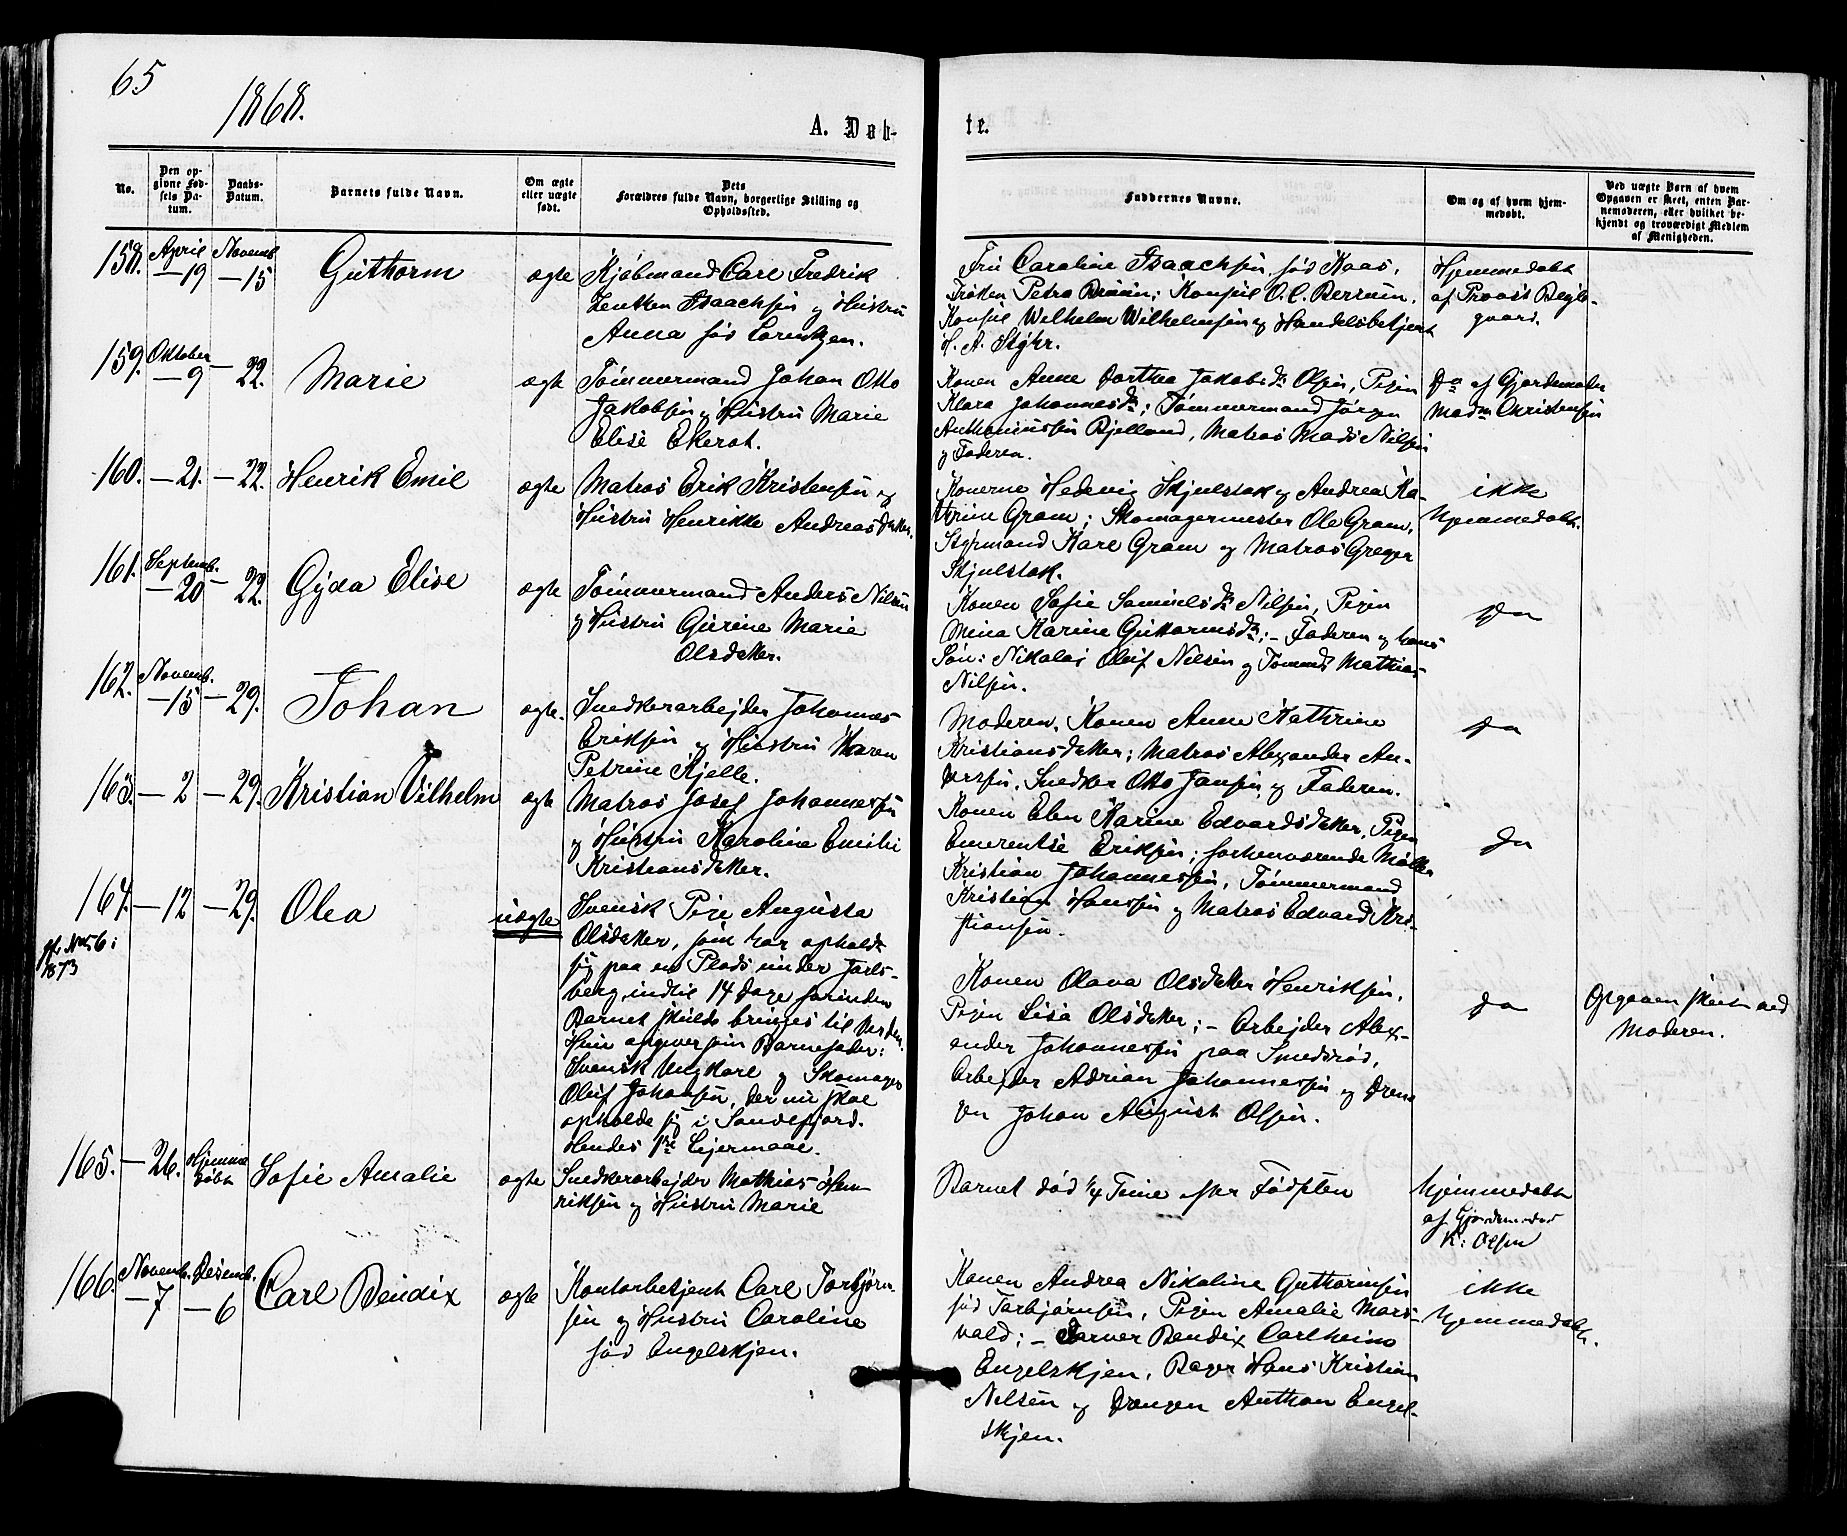 65
1868.
A. Døb-
te.
No.
Den op-
givne Fød-
sels Da-
tum.
Daabs-
Datum.
Barnets fulde Navn.
Om ægte
eller uægte
født.
Dets
Forældres fulde Navn, borgerlige Stilling og
Opholdssted.
Faddernes Navne.
Om og af hvem hjem-
medøbt.
Ved uægte Børn af hvem
Opgaven er skeet, enten Bar-
nemoderen, eller hvilket be-
kjendt og troværdigt Medlem
af Menigheden.
158. April — 19 Novemb. — 15 Guthorm ægte
Kjøbmand Carl Fredrik
Isaachsen og Hustru
Anna fød Lorentzen.
Fru Caroline Isaachsen, fød Kaas,
Frøken Petra Bruun; Konsul O. C. Bersum,
Konsul Wilhelm Wilhelmsen og Handelsbetjent
H. A. Styhr.
Hjemmedøbt
af Provst
159. Oktober — 9 — 22. Marie ægte
Tømmermand Johan Otto
Jakobsen og Hustru Marie
Elise Ekerot.
Konen Anne Dorthea Jakobsdr Olsen, Pigen
Klara Johannesdr; Tømmermand Jørgen
Anthoniussen Bjelland, Matros Mads Nilsen
og Faderen.
Do af Gjordemoder
Madm Christensen
160. — 21. — 22. Henrik Emil ægte
Matros Erik Kristensen og
Hustru Henrikke Andreasdatter.
Konerne Hedevig Skjulstak og Andrea Ka-
trine Gram; Skomagermester Ole Gram,
Styrmand Karl Gram og Matros Greger
Skjulstak.
ikke
hjemmedøbt.
161. Septemb. — 20 — 22. Gyda Elise ægte
Tømmermand Anders Nilsen
og Hustru Gurine Marie
Olsdatter.
Konen Sofie Samuelsdr Nilsen, Pigen
Mina Karine Guttormsdr; – Faderen og hans
Søn: Nikolai Oluf Nelsen og Tømmd Mathias
Nilsen.
Do
162. Novemb. — 15 — 29. Johan ægte.
Snedkerarbejder Johannes
Eriksen og Hustru Karen
Petrine Kjelle.
Moderen, Konen Anne Kathrine
Kristiansdatter; Matros Alexander An-
dersen, Snedker Otto Jansen og Faderen.
Do
163. — 2 — 29. Kristian Vilhelm ægte
Matros Josef Johannessen
og Hustru Karoline Emilie
Kristiansdatter.
Konen Elen Karine Edvardsdatter, Pigen
Emerentse Eriksen; forhenværende Møller
Kristian Johannessen, Tømmermand
Kristian Hanssen og Matros Edvard Kri-
stiansen.
Do
164. — 12 — 29. Olea uægte
1873
Svensk Pige Augusta
Olsdatter, som har opholdt
sig paa en Plads under Jarls-
berg indtil 14 Dage forinden
Barnet skulde bringes til Verden.
Hun opgiver som Barnefader:
Svensk Ungkarl og Skomager
Oluf Johansen, der nu skal
opholde sig i Sandefjord.
Hendes 1ste Lejermaal.
Konen Olava Olsdatter Henriksen,
Pigen Lisa Olsdatter; – Arbejder Alex-
ander Johannessen paa Smedsrød,
Arbejder Adrian Johannessen og Dren-
gen Johan August Olsen.
Do
Opgaven skeet ved
Moderen.
165. — 26. Hjemme
døbt Sofie Amalie ægte
Snedkerarbejder Mathias Hen-
riksen og Hustru Marie
Barnet død 1/4 Time efter Fødselen
hjemmedøbt
af Gjordemoder
K: Olsen
166. Novemb. — 7 Desemb. — 6 Carl Bendix ægte
Kontorbetjent Carl Torbjørn-
sen og Hustru Caroline
fød Engelskjen.
Konen Andrea Nikoline Guttormsen
fød Torbjørnsen, Pigen Amalie Mors-
vald; – Garver Bendix Carlheim
Engelskjen, Bager Hans Kristian
Nelsen og Drengen Anthon Engel-
skjen.
ikke
hjemmedøbt.